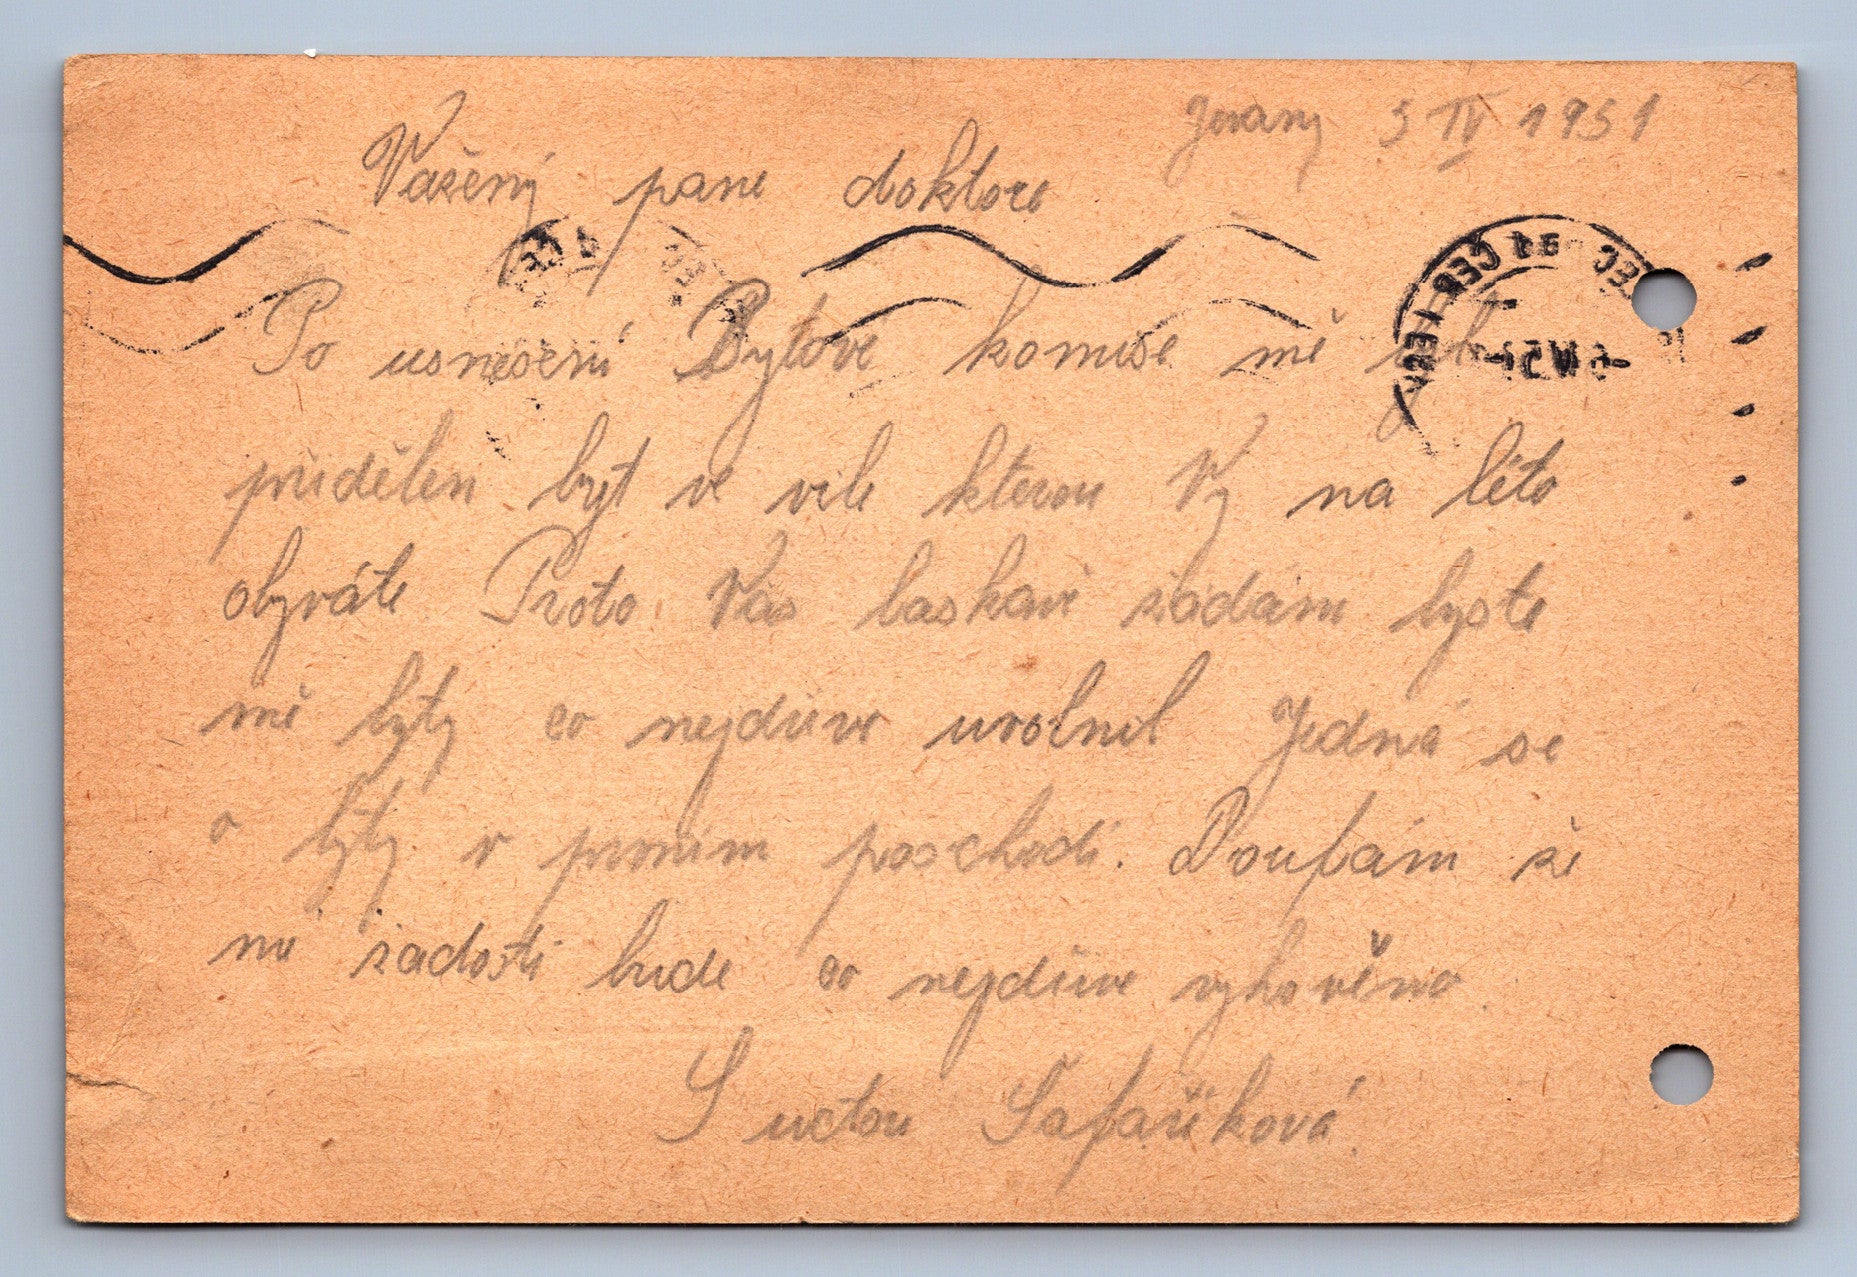 Jevany 5 IV 1951
Vážený pane doktore
Po usnesení Bytové komise mě
přidělen byt ve vile kterou Vy na léto
obyváte Proto Vás laskavě žádám byste
mě byty co nejdříve uvolnil Jedná se
o byty v prvním poschodí. Doufám že
mé žádosti bude co nejdříve vyhověno.
S uctou Šafaříková